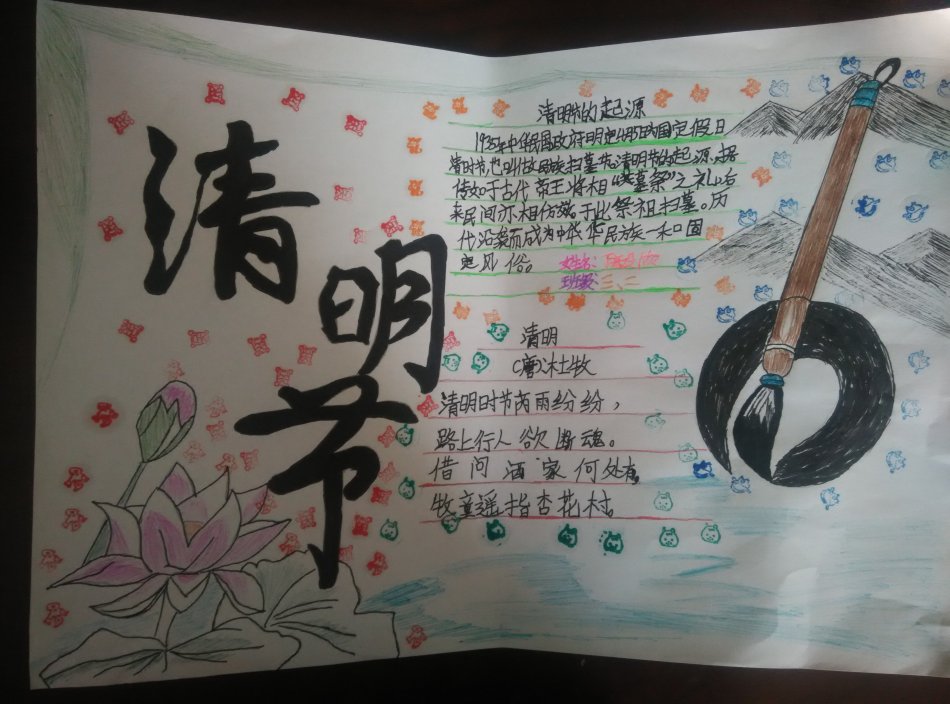 清明节
清明节的起源
1935年中华民国政府明定4月5日为国定假日
清明节,也叫做民族扫墓节。清明节的起源,据
传始于古代帝王将相“墓祭”之礼,后
来民间亦相仿效,于此祭祖扫墓。历
代沿袭而成为中华民族一种固
定风俗。
姓名:
班级:三、二
清明
(唐)杜牧
清明时节芮雨纷纷,
路上行人欲断魂。
借问酒家何处有,
牧童遥指杏花村。